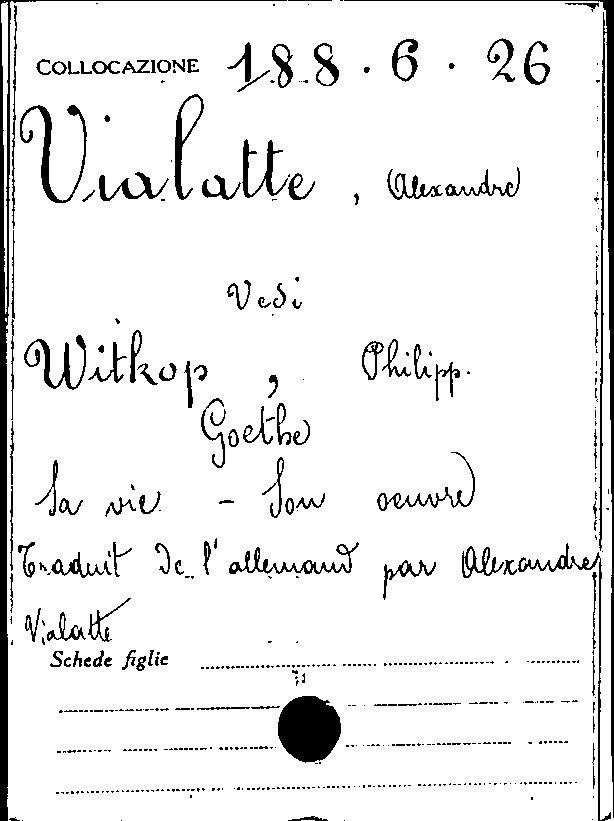 COLLOCAZIONE 188.6.26
Vialatte, Alexandre
Vedi
Witkop, Philipp.
Goethe
Sa vie - Son oeuvre
Traduit de l'allemand par Alexandre
Vialatte
Schede figlie